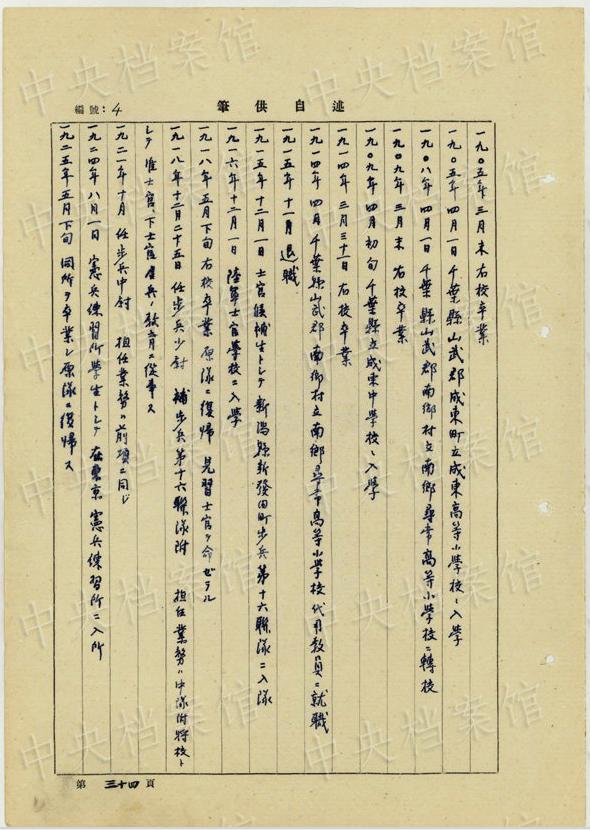 編號：4
述自供筆
一九〇五年三月末右校卒業
一九〇五年四月一日千葉縣山武郡成東町立成東高等小學校ニ入學
一九〇八年四月一日千葉縣山武郡南鄉村立南鄉尋常高等小學校ニ轉校
一九〇九年三月末右校卒業
一九〇九年四月初旬千葉縣立成東中學校ニ入學
一九一四年三月三十一日右校卒業
一九一四年四月千葉縣山武郡南鄉村立南鄉尋常高等小學校代用教員ニ就職
一九一五年十一月退職
一九一五年十二月一日士官候補生トシテ新潟縣新發田町步兵第十六聯隊ニ入隊
一九一六年十二月一日陸軍士官學校ニ入學
一九一八年五月下旬右校卒業原隊ニ復帰見習士官ヲ命ゼラル
一九一八年十二月二十五日任步兵少尉補步兵第十六聯隊附担任業務ハ中隊附將校ト
シテ准士官下士官兵ノ教育ニ從事ス
一九二一年十月任步兵中尉担任業務ハ前項ニ同ジ
一九二四年八月一日憲兵練習所學生トシテ在東京憲兵練習所ニ入所
一九二五年五月下旬同所ヲ卒業シ原隊ニ復帰ス
第三十四頁
中央档案馆
中央档案馆
中央档案馆
中央档案馆
中央档案馆
中央档案馆
中央档案馆
中央档案馆